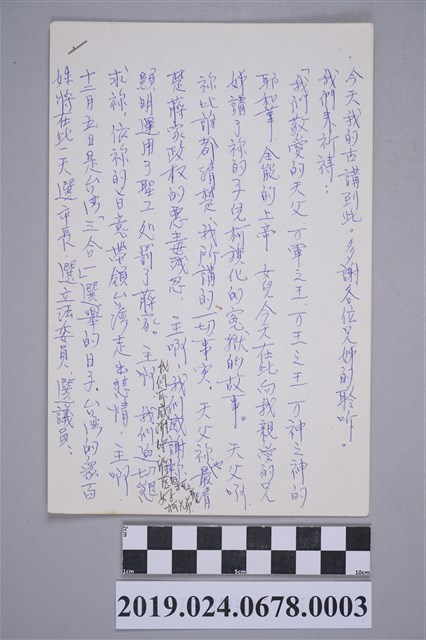 今天我的古講到此。多謝各位兄姊的聆听。
我們來祈禱:
「我所敬愛的天父,萬軍之王,万王之王,万神之神的
耶和華,全能的上帝,女兒今天在此向我親愛的兄
姊講了祢的子兒柯旗化的冤獄的故事。天父啊
祢比誰都清楚,我所講的一切事实,天父祢最清
楚蔣家政权的惡毒残忍,主啊,我們感謝祢
顯明運用了聖工处罰了蔣家。主啊,我們迫切懇
我們可感謝
求祢,依祢的旨意帶領台湾走出悲情,主啊!
十二月五日是台湾「三合一」選舉的日子。台湾的眾百
姓將在此一天選市長,選立法委員,選議員、
2cm
1cm
5cm
10cm
2019.024.0678.0003